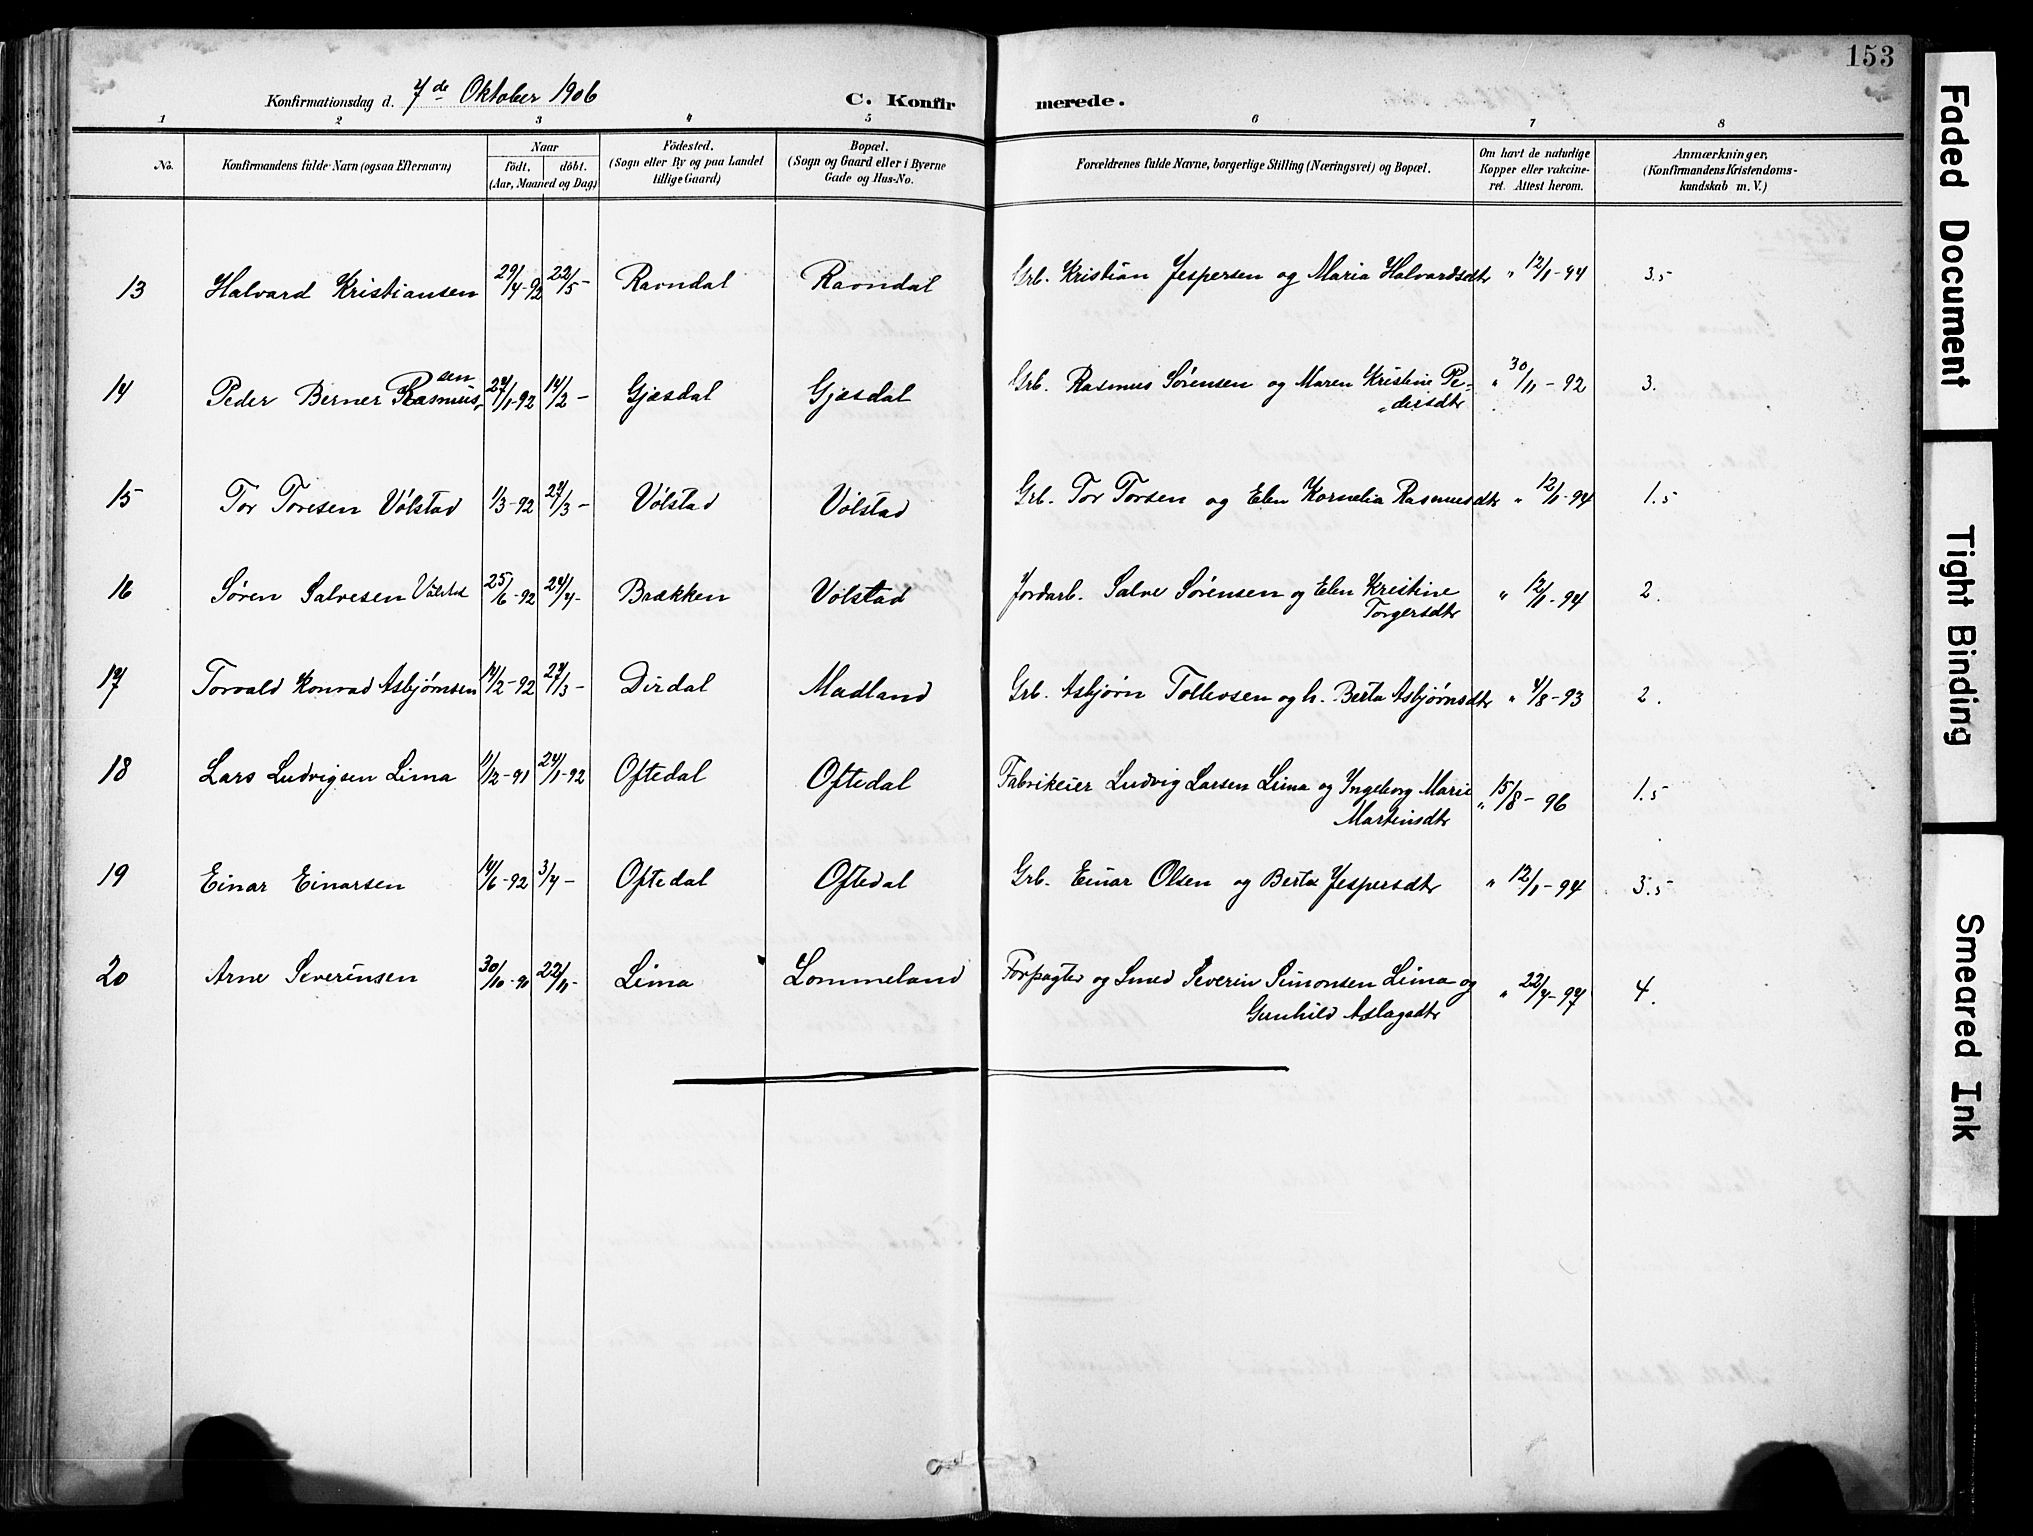 153
Konfirmationsdag d. 7de Oktober 1906 C. Konfirmerede.
1 2 3 4 5 6 7 8
No. Konfirmandens fulde Navn (ogsaa Efternavn) Naar födt. döbt. (Aar, Maaned og Dag) Födested. (Sogn eller By og paa Landet tillige Gaard) Bopæl. (Sogn og Gaard eller i Byerne Gade og Hus-No. Forældrenes fulde Navne, borgerlige Stilling (Næringsvei) og Bopæl. Om havt de naturlige Kopper eller vakcineret. Attest herom. Anmærkninger, (Konfirmandens Kristendomskundskab m. V.)
13 Halvard Kristiansen 29/4-92 22/5- Ravndal Ravndal Grb. Kristian Jespersen og Maria Halvardsdtr " 12/1-94 3.5
14 Peder Berner Rasmussen 27/1-92 14/2- Gjæsdal Gjæsdal Grb. Rasmus Sørensen og Maren Kristine Pe-
"dersdtr " 30/11-92 3.
15 Tor Toresen Vølstad 1/3-92 27/3- Vølstad Vølstad Grb. Tor Torsen og Elen Kornelia Rasmusdtr " 12/1-94 1.5
16 Søren Salvesen Vølstad 25/6-92 24/4- Brækken Vølstad Jordarb. Salve Sørensen og Elen Kristine
Torgersdtr " 12/1-94 2.
17 Torvald Konrad Asbjørnsen 14/2-92 27/3- Dirdal Madland Grb. Asbjørn Tollevsen og h. Berta Asbjørnsdtr " 4/8-93 2.
18 Lars Ludvigsen Lima 11/12-91 24/1-92 Oftedal Oftedal Fabrikeier Ludvig Larsen Lima og Ingeborg Marie
Martinsdtr " 15/8-96 1.5
19 Einar Einarsen 14/6-92 3/4- Oftedal Oftedal Grb. Einar Olsen og Berta Jespersdtr " 12/1-94 3.5
20 Arne Severinsen 30/10-91 22/11- Lima Lommeland Forpagter og Smed Severin Simonsen Lima og
Gunhild Aslagsdtr " 22/4-97 4.
Faded Document
Tight Binding
Smeared Ink